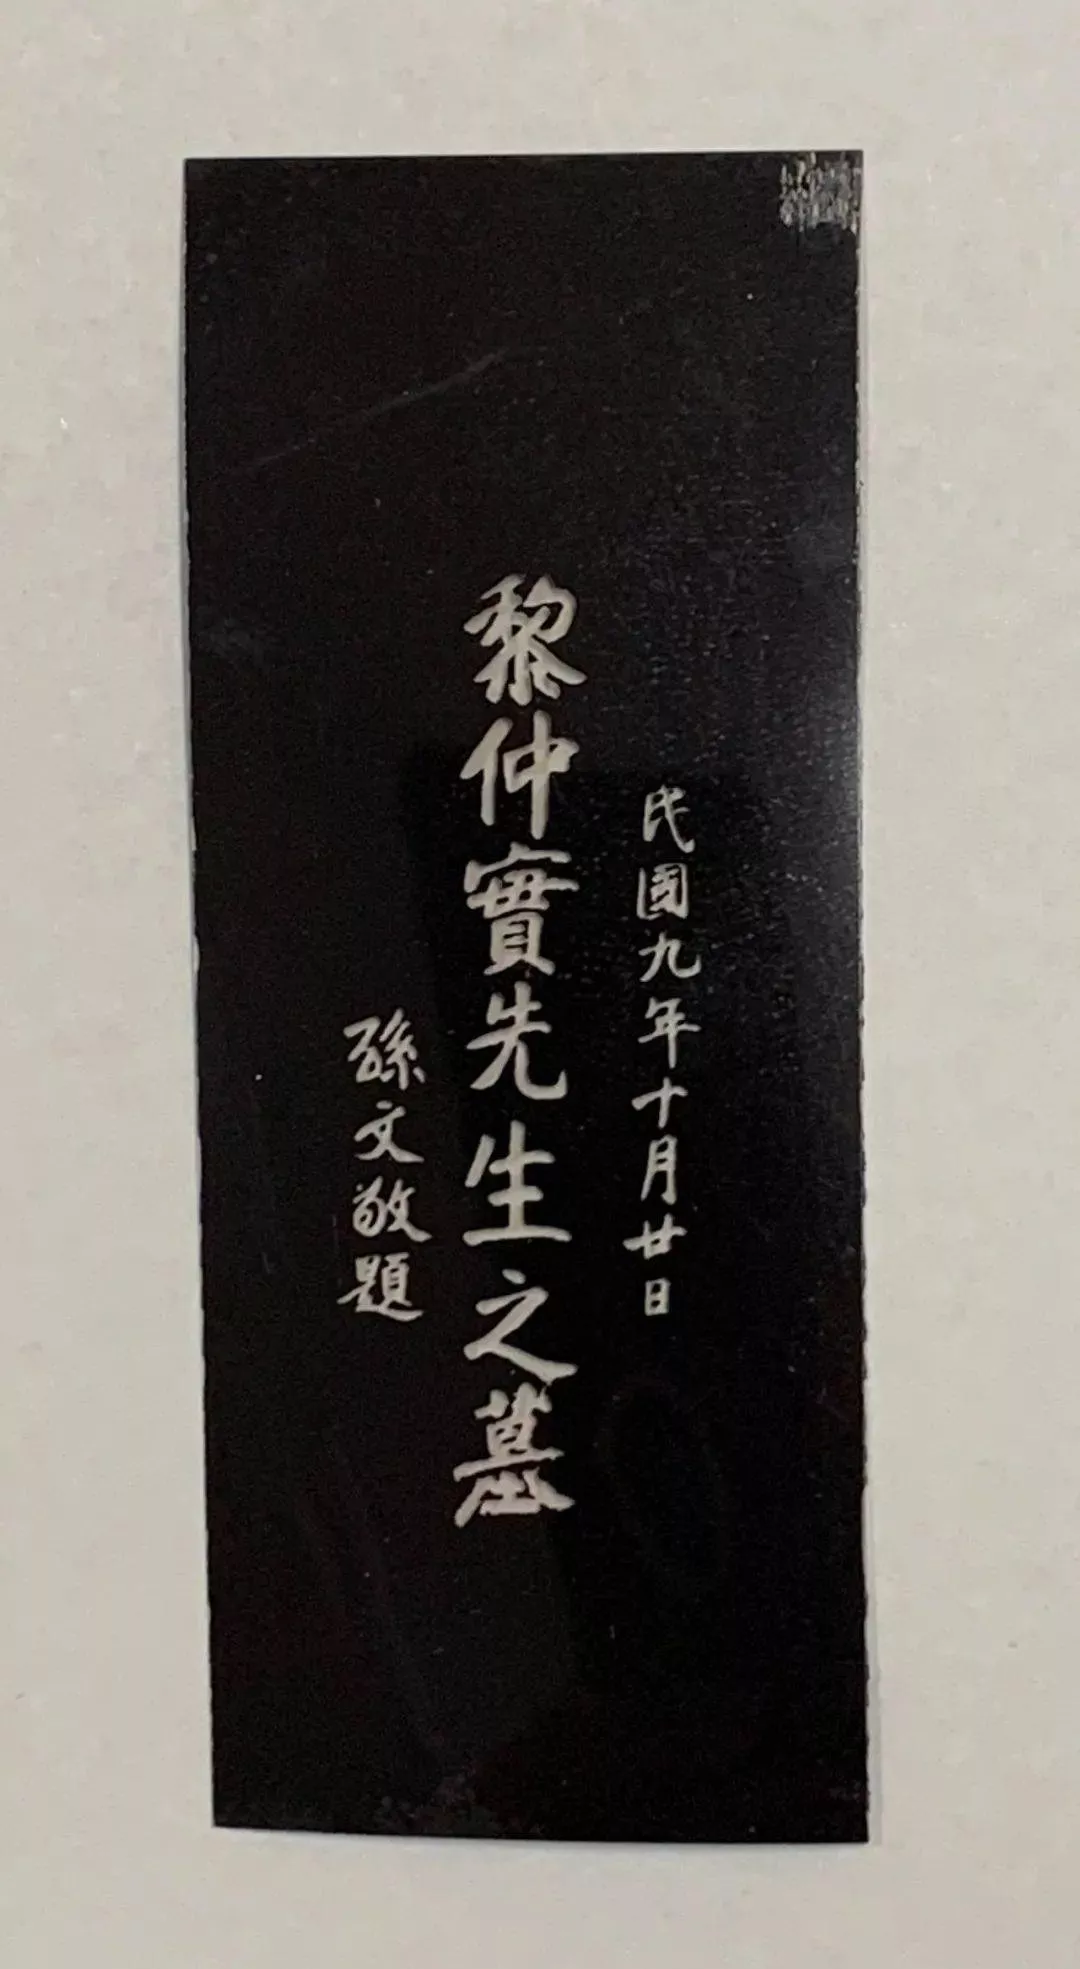 民國九年十月廿日
黎仲實先生之墓
孫文敬題